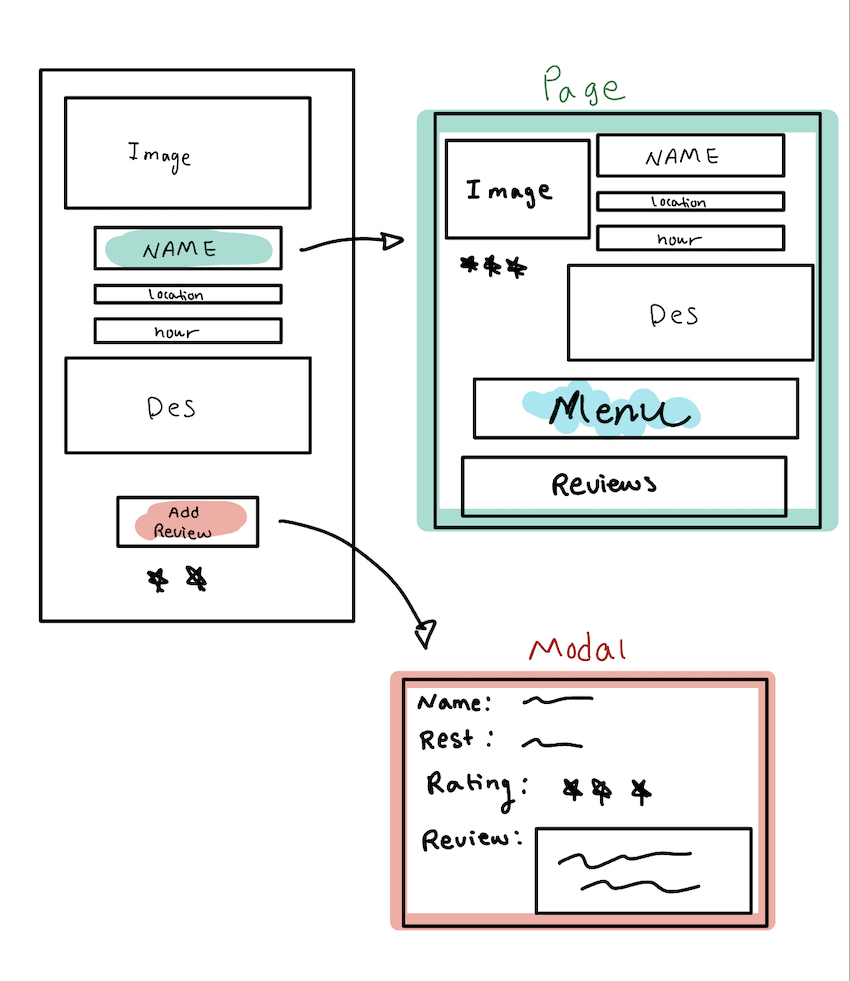 Image
NAME
location
hour
Des
Add
Review
Page
Image
NAME
location
hour
Des
Menu
Reviews
Modal
Name:
Rest:
Rating:
Review: